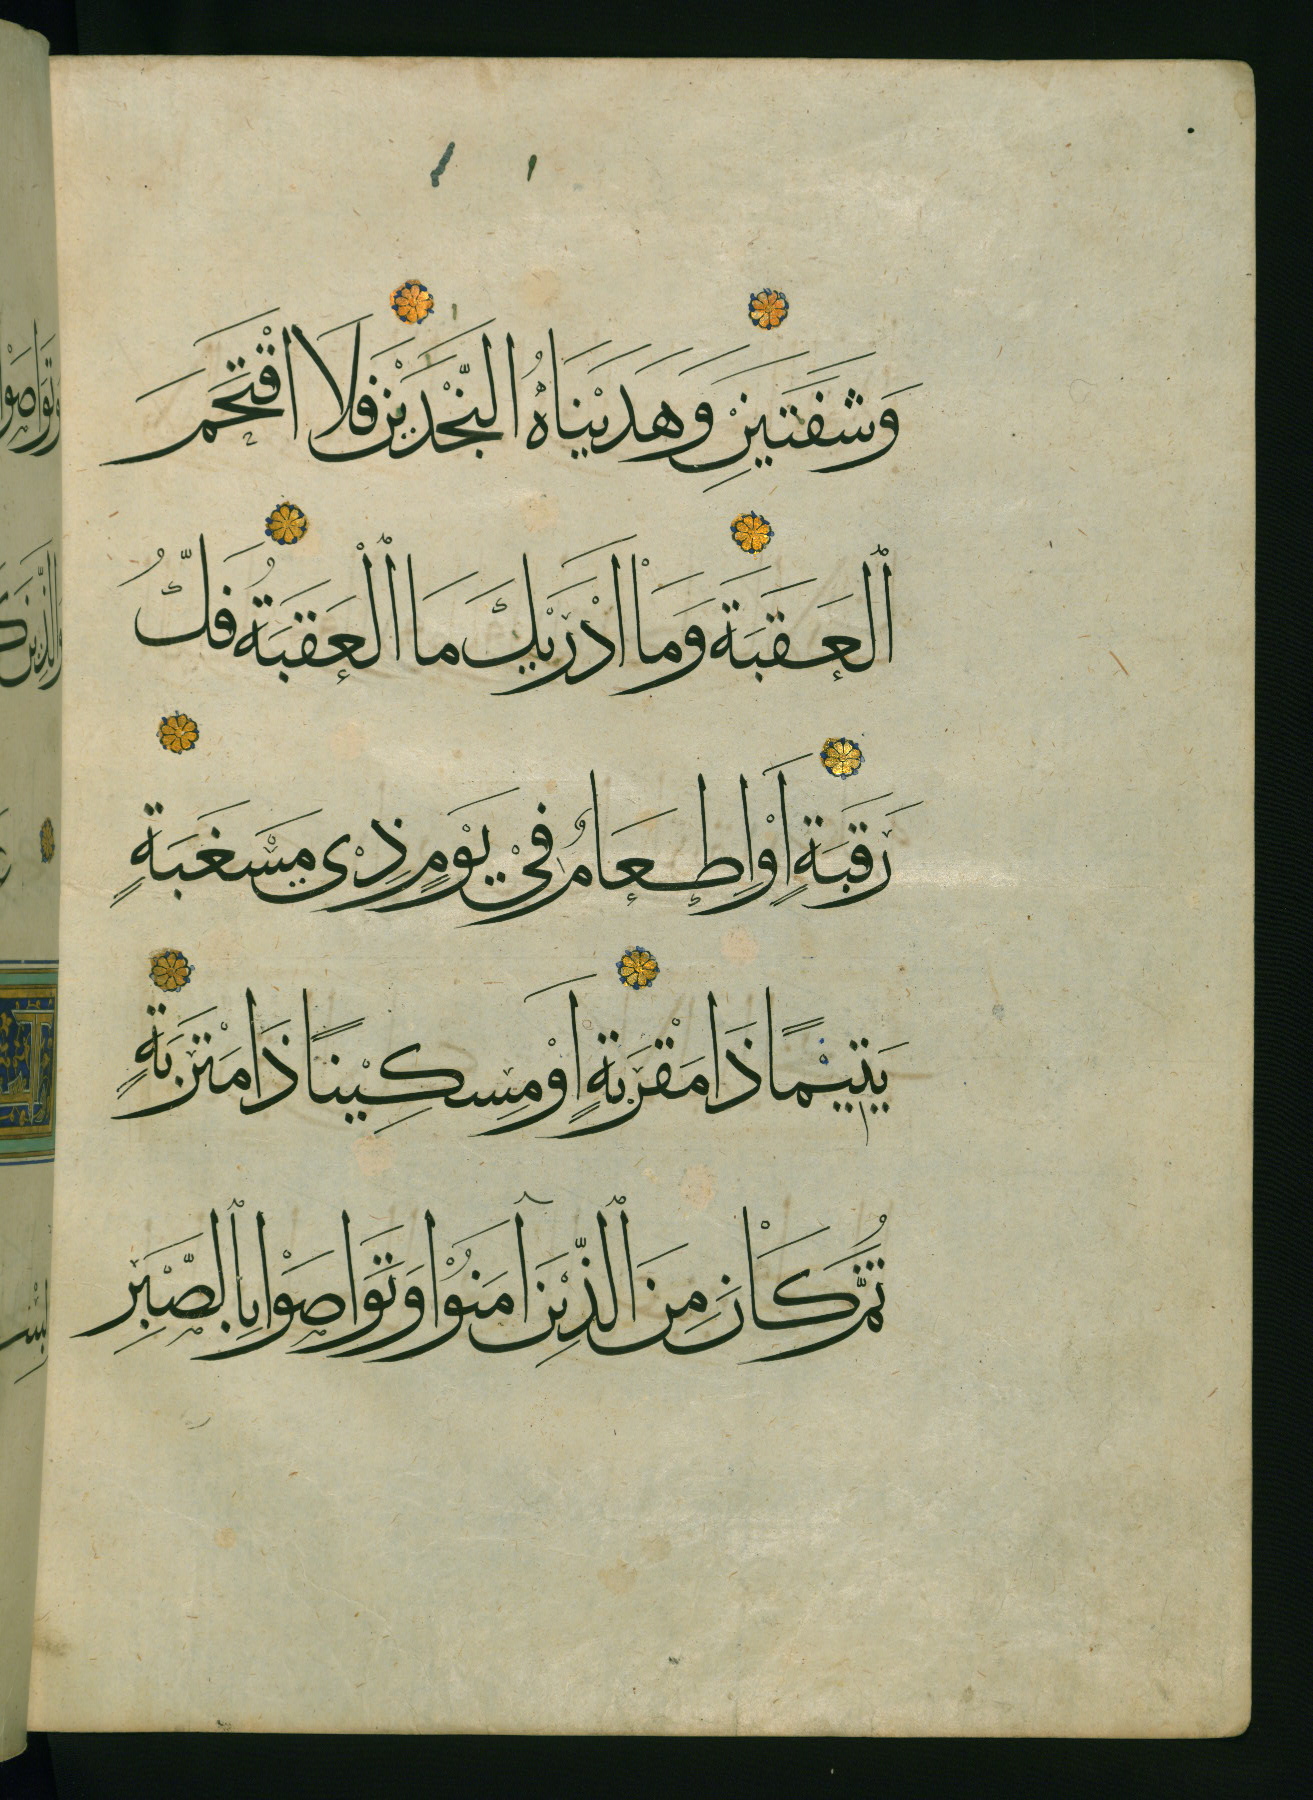 وَشَفَتَيْنِ وَهَدَيْنَاهُ النَّجْدَيْنِ فَلَا اقْتَحَمَ
ٱلْعَقَبَةَ وَمَا اَدْرَيٰكَ مَا ٱلْعَقَبَةُ فَكُّ
رَقَبَةٍ اَوْ اِطْعَامٌ فِيْ يَوْمٍ ذِيْ مَسْغَبَةٍ
يَتِيْمًا ذَا مَقْرَبَةٍ اَوْ مِسْكِيْنًا ذَا مَتْرَبَةٍ
ثُمَّ كَانَ مِنَ ٱلَّذِيْنَ آمَنُوْا وَتَوَاصَوْا بِٱلصَّبْرِ